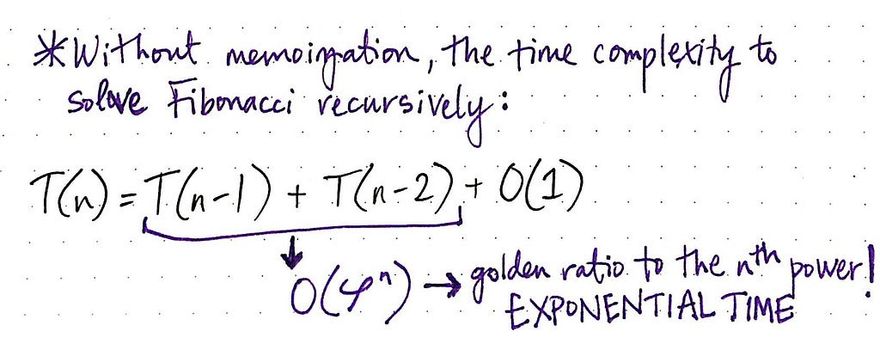 *Without memoization, the time complexity to
solve Fibonacci recursively:
T(n) = T(n-1) + T(n-2) + O(1)
O(φⁿ) → golden ratio to the nth power!
EXPONENTIAL TIME